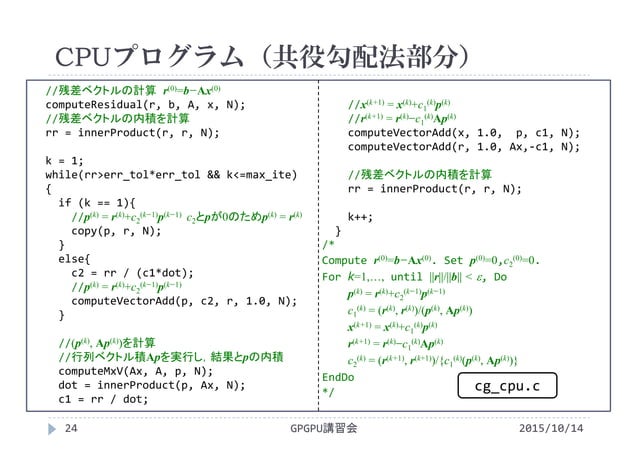 CPUプログラム（共役勾配法部分）
//残差ベクトルの計算 r(0)=b−Ax(0)
computeResidual(r, b, A, x, N);
//残差ベクトルの内積を計算
rr = innerProduct(r, r, N);
k = 1;
while(rr>err_tol*err_tol && k<=max_ite)
{
if (k == 1){
//p(k) = r(k)+c2(k−1)p(k−1) c2とpが0のためp(k) = r(k)
copy(p, r, N);
}
else{
c2 = rr / (c1*dot);
//p(k) = r(k)+c2(k−1)p(k−1)
computeVectorAdd(p, c2, r, 1.0, N);
}
//(p(k), Ap(k))を計算
//行列ベクトル積Apを実行し，結果とpの内積
computeMxV(Ax, A, p, N);
dot = innerProduct(p, Ax, N);
c1 = rr / dot;
//x(k+1) = x(k)+c1(k)p(k)
//r(k+1) = r(k)−c1(k)Ap(k)
computeVectorAdd(x, 1.0, p, c1, N);
computeVectorAdd(r, 1.0, Ax,-c1, N);
//残差ベクトルの内積を計算
rr = innerProduct(r, r, N);
k++;
}
/*
Compute r(0)=b−Ax(0). Set p(0)=0,c2(0)=0.
For k=1,…, until ||r||/||b|| < ε, Do
p(k) = r(k)+c2(k−1)p(k−1)
c1(k) = (r(k), r(k))/(p(k), Ap(k))
x(k+1) = x(k)+c1(k)p(k)
r(k+1) = r(k)−c1(k)Ap(k)
c2(k) = (r(k+1), r(k+1))/{c1(k)(p(k), Ap(k))}
EndDo
*/
cg_cpu.c
24
GPGPU講習会
2015/10/14